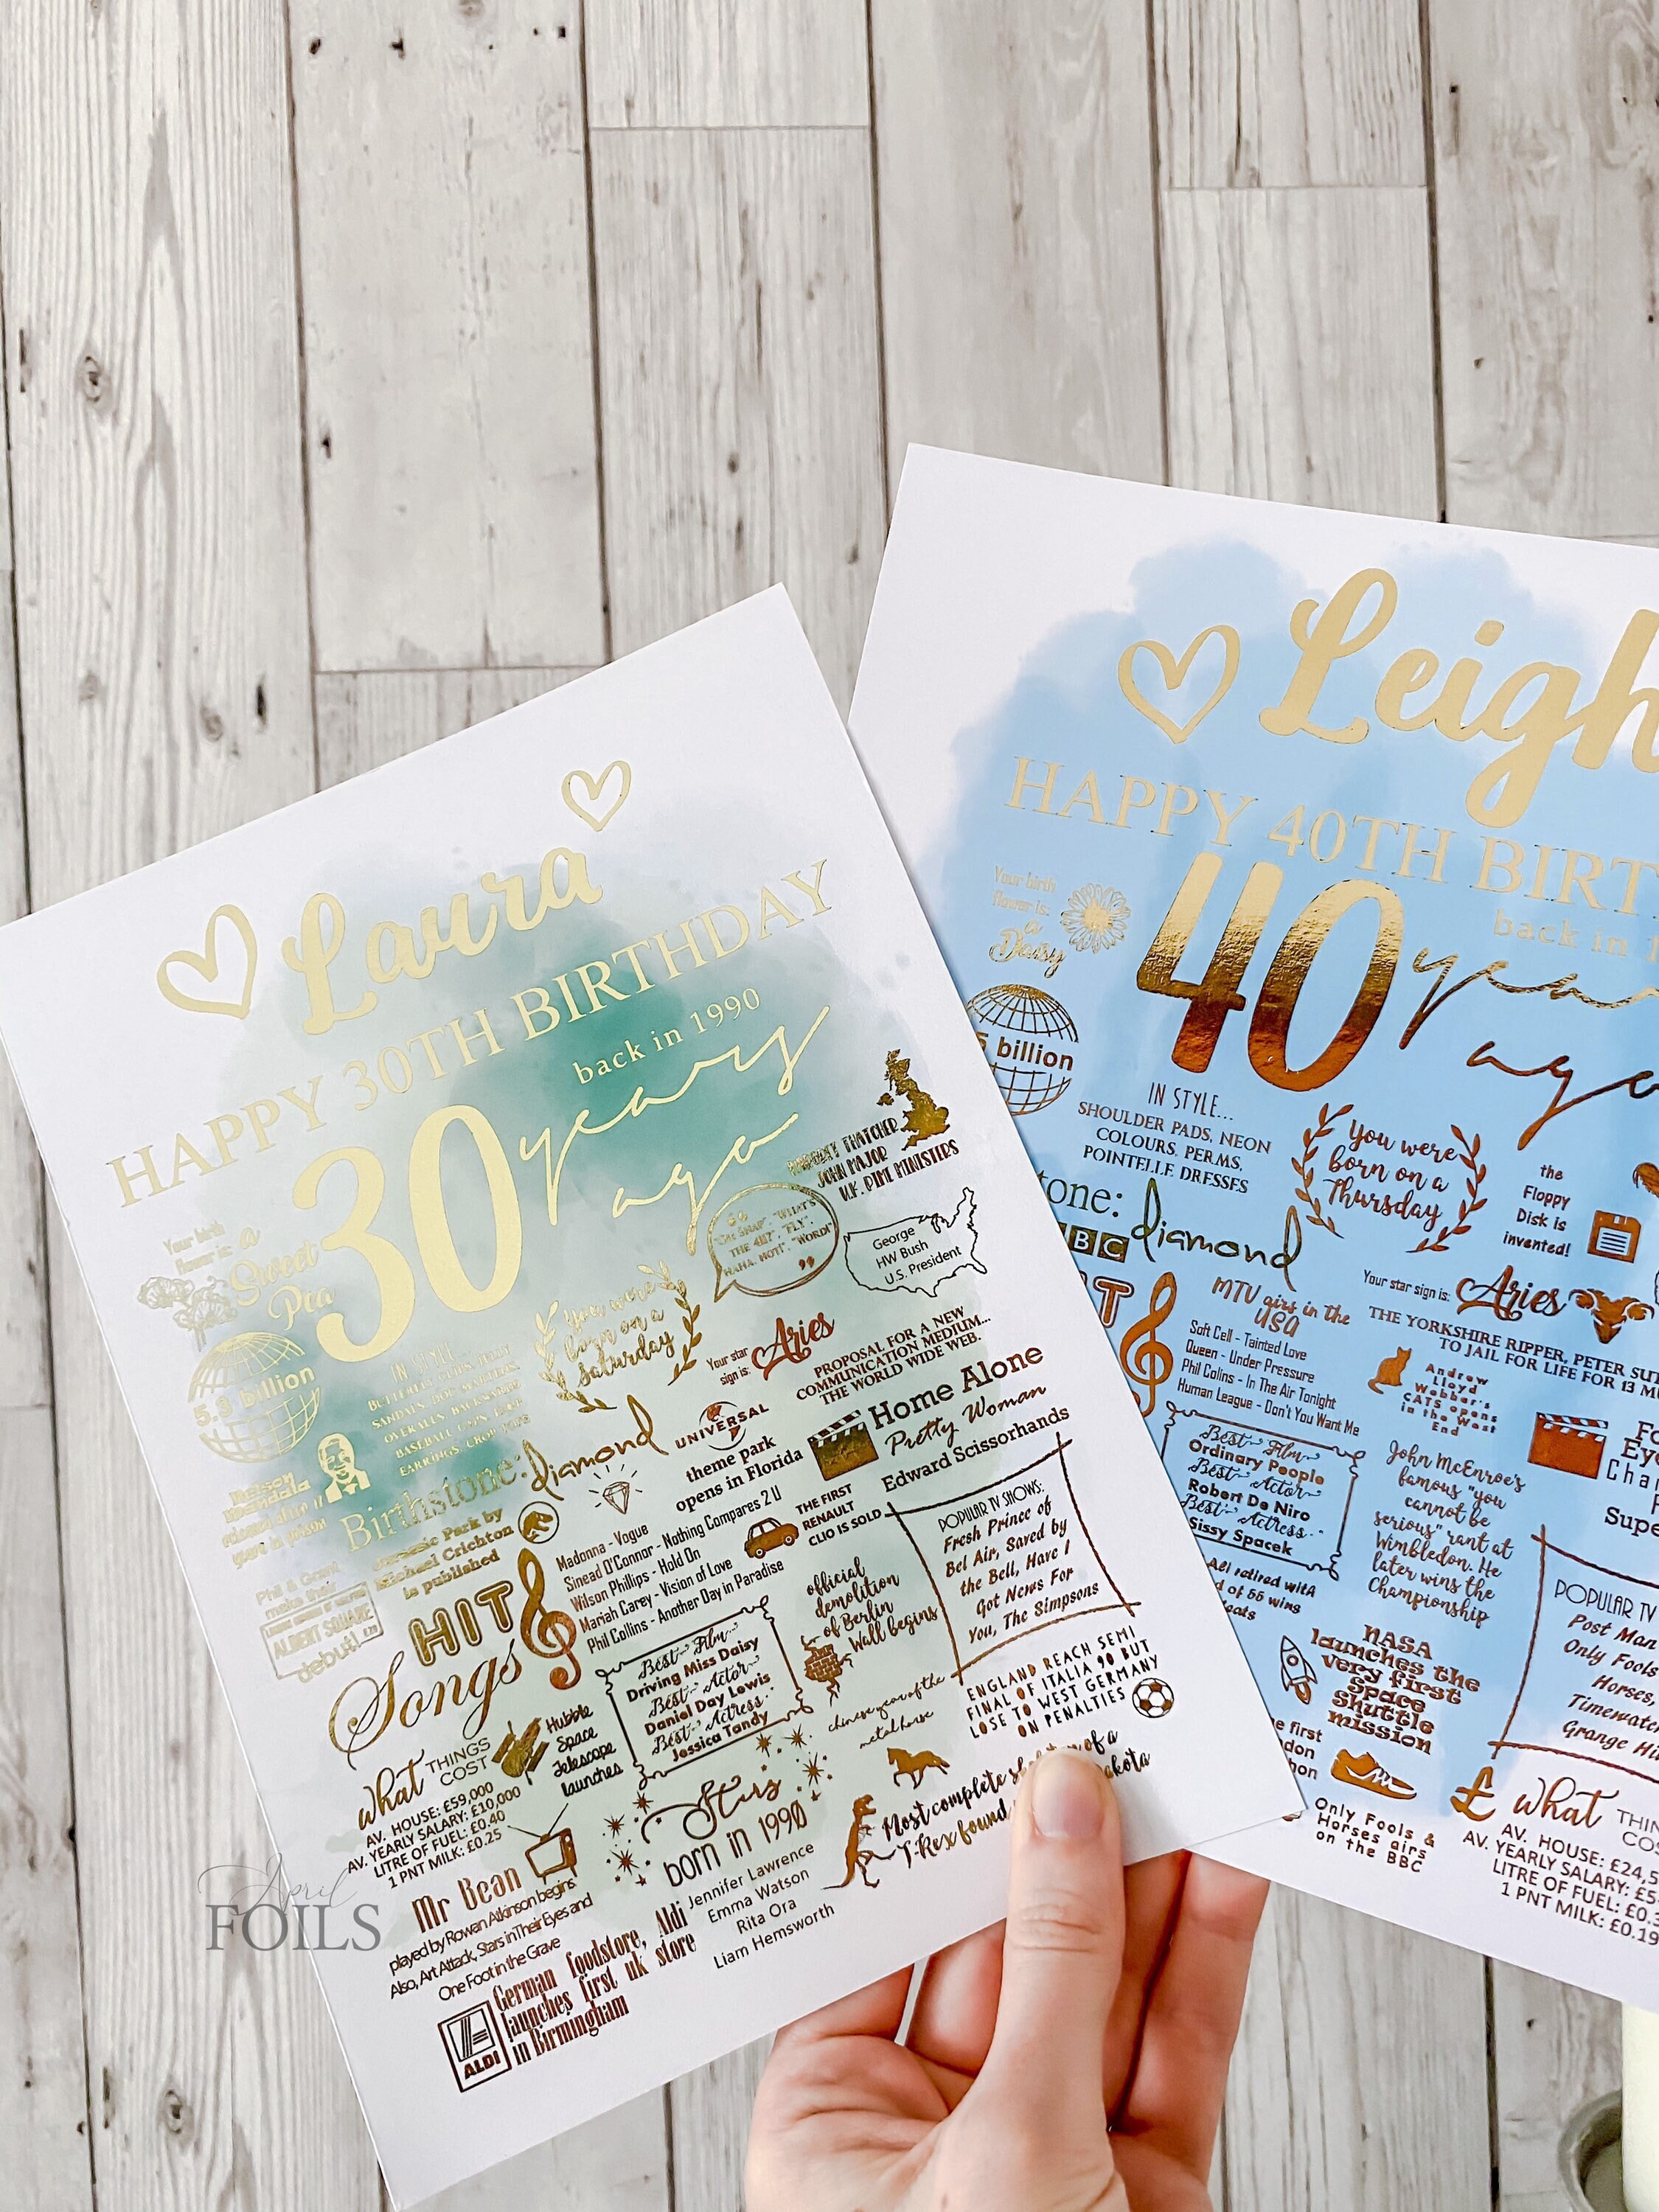 Laura
HAPPY 30TH BIRTHDAY
back in 1990
30 years
ago
MARGARET THATCHER
JOHN MAJOR
U.K. PIME MINISTERS
Your birth
flower is: a
Sweet
Pea
5.9 billion
IN STYLE...
You were
born on a
Saturday
"OH SNAP", "WHAT'S
THE 411?", "FLY",
HAHA. NOT!", "WORD!"
George
HW Bush
U.S. President
Your star
sign is: Aries
PROPOSAL FOR A NEW
COMMUNICATION MEDIUM...
THE WORLD WIDE WEB.
Nelson
Mandela
Birthstone: diamond
UNIVERSAL
theme park
opens in Florida
Home Alone
Pretty Woman
Edward Scissorhands
Jurassic Park by
Michael Crichton
is published
Phil & Grant
make their
ALBERT SQUARE
debut!
HIT
Songs
Madonna - Vogue
Sinead O'Connor - Nothing Compares 2 U
Wilson Phillips - Hold On
Mariah Carey - Vision of Love
Phil Collins - Another Day in Paradise
THE FIRST
RENAULT
CLIO IS SOLD
POPULAR TV SHOWS:
Fresh Prince of
Bel Air, Saved by
the Bell, Have I
Got News For
You, The Simpsons
official
demolition
of Berlin
Wall begins
Best Film..
Driving Miss Daisy
Best Actor..
Daniel Day Lewis
Best Actress..
Jessica Tandy
Hubble
Space
Telescope
launches
chinese year of the
metal horse
ENGLAND REACH SEMI
FINAL OF ITALIA 90 BUT
LOSE TO WEST GERMANY
ON PENALTIES
what THINGS
COST
AV. HOUSE: £59,000
AV. YEARLY SALARY: £10,000
LITRE OF FUEL: £0.40
1 PNT MILK: £0.25
Stars
born in 1990
Jennifer Lawrence
Emma Watson
Rita Ora
Liam Hemsworth
Most complete of a
T-Rex found
Mr Bean
played by Rowan Atkinson begins.
Also, Art Attack, Stars in Their Eyes and
One Foot in the Grave
ALDI
German foodstore, Aldi
launches first uk store
in Birmingham
April
FOILS
Leigh
HAPPY 40TH BIRT
back in 1
40 years
ago
Your birth
flower is:
a
Daisy
5 billion
IN STYLE...
SHOULDER PADS, NEON
COLOURS, PERMS,
POINTELLE DRESSES
You were
born on a
Thursday
the
Floppy
Disk is
invented!
tone: diamond
BBC
Your star sign is: Aries
THE YORKSHIRE RIPPER, PETER SUT
TO JAIL FOR LIFE FOR 13 M
MTV airs in the
USA
Soft Cell - Tainted Love
Queen - Under Pressure
Phil Colins - In The Air Tonight
Human League - Don't You Want Me
Andrew
Lloyd
Webber's
CATS opens
in the West
End
Best Film..
Ordinary People
Best Actor..
Robert De Niro
Best Actress..
Sissy Spacek
John McEnroe's
famous "you
cannot be
serious" rant at
Wimbledon. He
later wins the
Championship
Fo
Eye
Char
Supe
Ali retired with
d of 56 wins
NASA
launches the
very first
Space
Shuttle
mission
POPULAR TV
Post Man
Only Fools
Horses,
Timewatch
Grange Hi
e first
Only Fools &
Horses airs
on the BBC
£ what THIN
COS
AV. HOUSE: £24,5
AV. YEARLY SALARY: £5
LITRE OF FUEL: £0.3
1 PNT MILK: £0.19